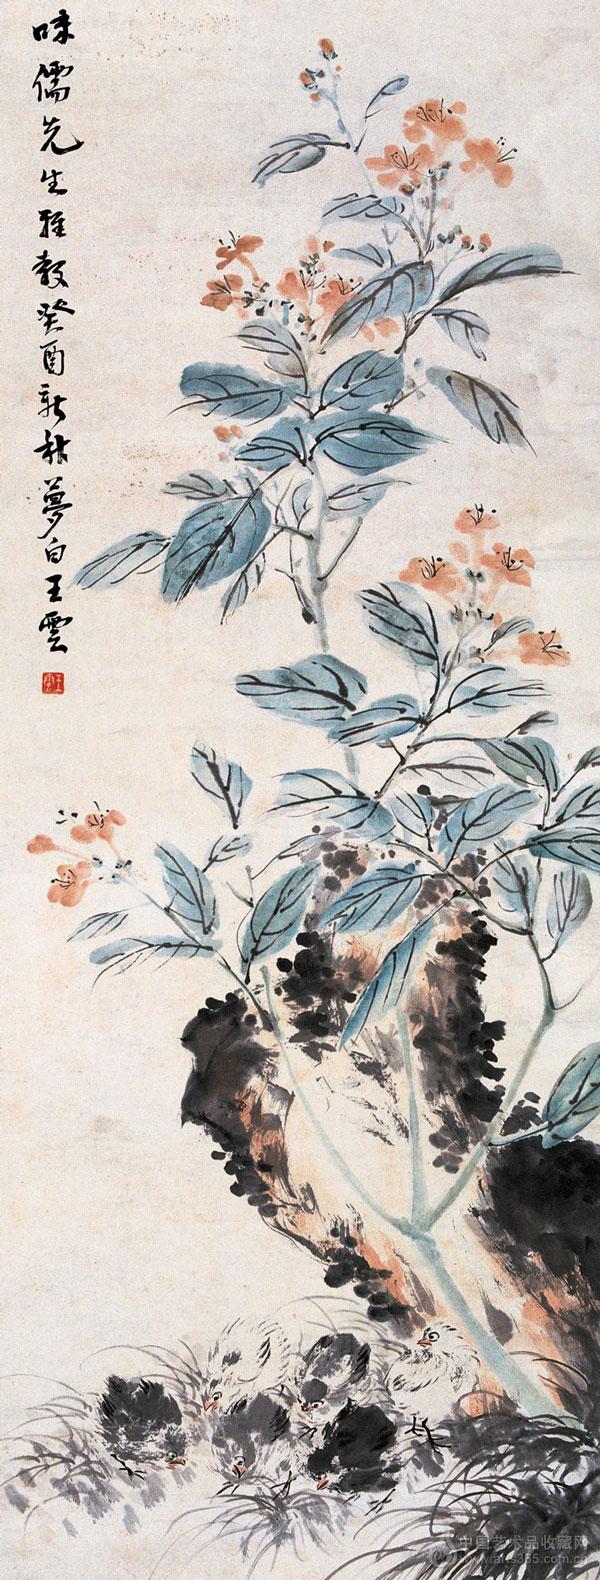 味儒先生雅教癸酉新秋夢白王雲
王雲
中国艺术品收藏网
www.arts365.com.cn